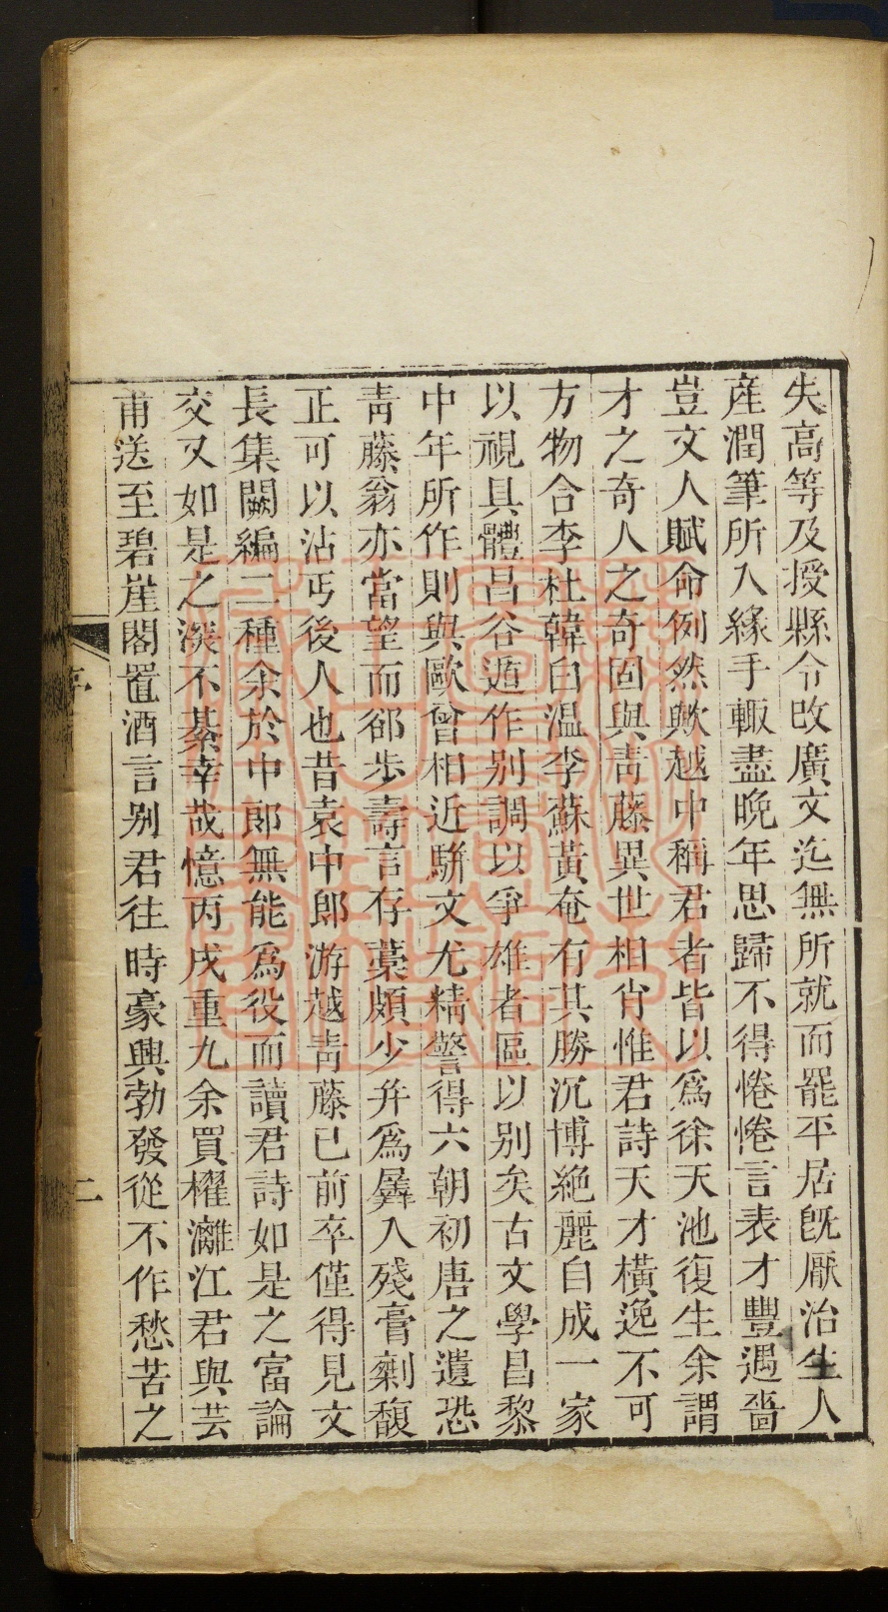 失高等及授縣令改廣文迄無所就而罷平居旣厭治生人
産潤筆所入緣手輙盡晩年思歸不得惓惓言表才豐遇嗇
豈文人賦命例然歟越中稱君者皆以爲徐天池復生余謂
才之奇人之奇固與靑藤異世相肖惟君詩天才橫逸不可
方物合李杜韓白溫李蘇黃奄有其勝沉博絶麗自成一家
以視具體昌谷遁作别調以爭雄者區以别矣古文學昌黎
中年所作則與歐曾相近騈文尤精警得六朝初唐之遺恐
靑藤翁亦當望而郤步壽言存藁頗少幷爲屬人殘膏剩馥
正可以沾丐後人也昔袁中郎游越靑藤已前卒僅得見文
長集闕編二種余於中郎無能爲役而讀君詩如是之富論
交又如是之深不綦幸哉憶丙戌重九余買櫂灕江君與芸
甫送至碧崖閣置酒言别君往時豪興勃發從不作愁苦之
序
二